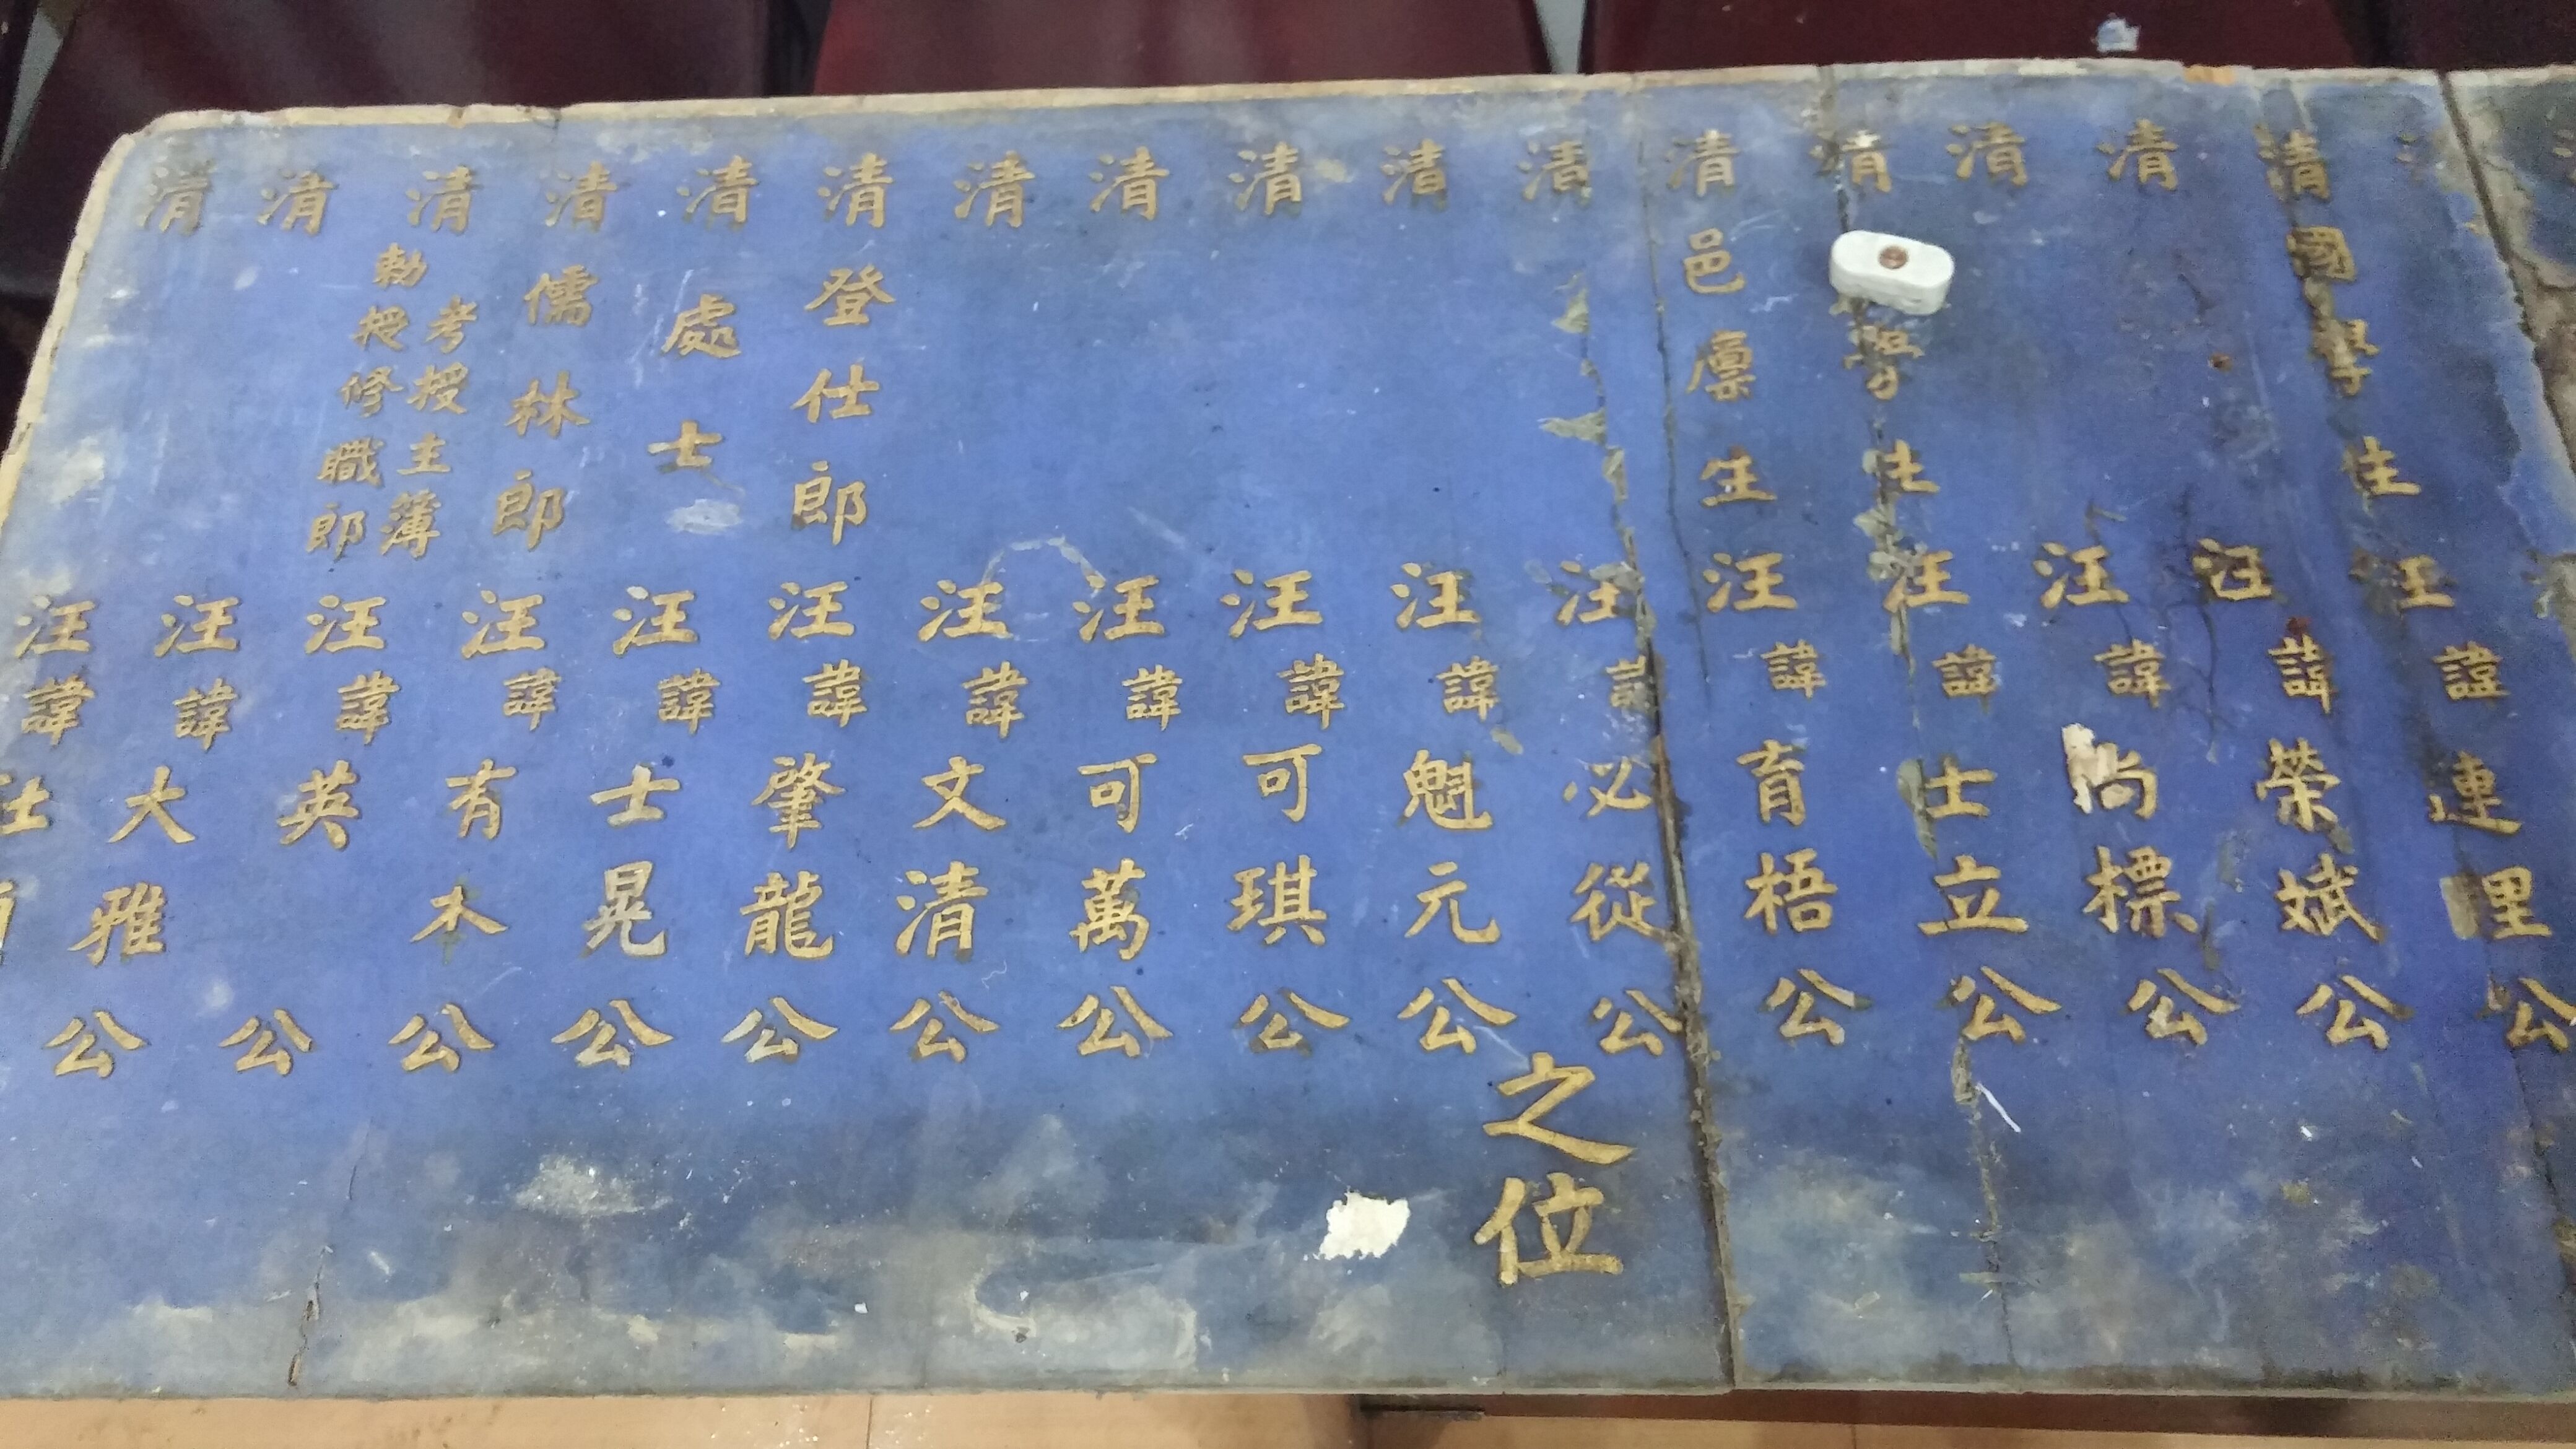 清國學生汪諱連理公
清汪諱榮斌公
清汪諱尚標公
清學生汪諱士立公
清邑廩生汪諱育梧公
清汪諱必從公
之位
清汪諱魁元公
清汪諱可琪公
清汪諱可萬公
清汪諱文清公
清登仕郎汪諱肇龍公
清處士汪諱士晃公
清儒林郎汪諱有木公
清考授主簿勅授修職郎汪諱英公
清汪諱大雅公
清汪諱仕